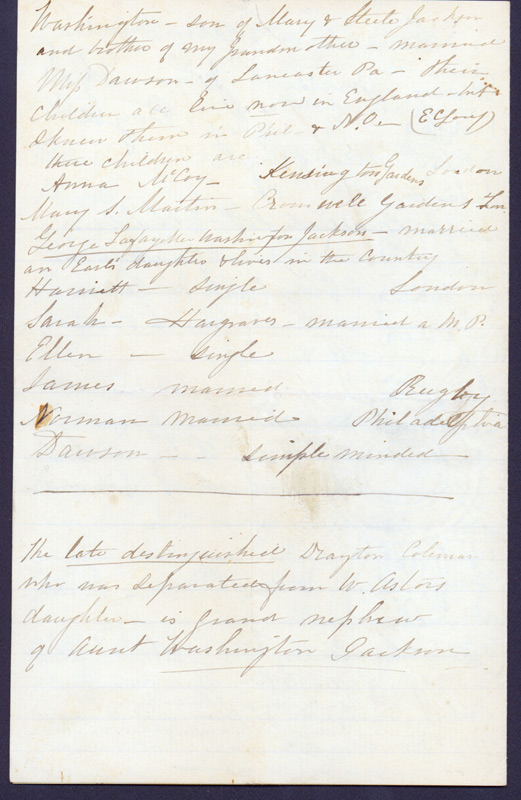 Washington - son of Mary & Steele Jackson
and brother of my Grandmother - married
Miss Dawson - of Lancaster Pa - their
children are live now in England - but
I knew them in Phil. & N.O. (E C Long)
there children are
Anna McCoy - Kensington Gardens London
Mary S. Martin - Cromwell Gardens Lon
George Lafayette Washington Jackson - married
an Earls daughter & lives in the Country
Harriett - single London
Sarah - Hargraves - married a M.P.
Ellen - single
James married Rugby
Norman married Philadelphia
Dawson - - simple minded
The late distinguished Drayton Coleman
who was separated from W. Astors
daughter - is grand nephew
of Aunt Washington Jackson